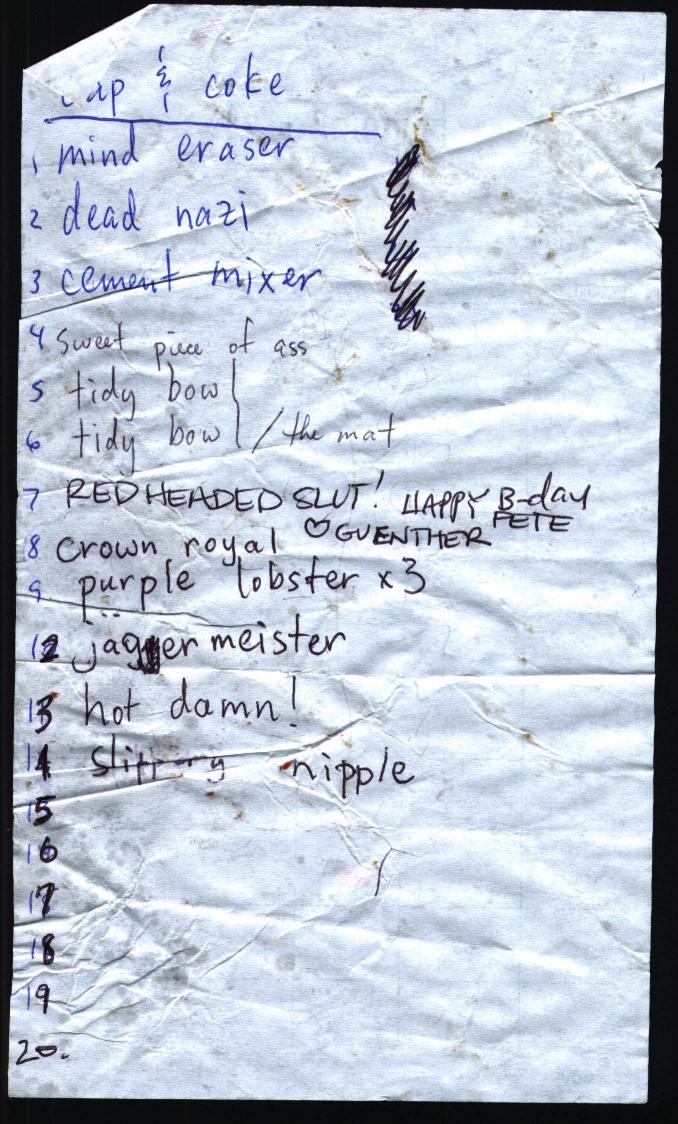 & coke
1 mind eraser
2 dead nazi
3 cement mixer
4 sweet piece of ass
5 tidy bow
6 tidy bow / the mat
7 RED HEADED SLUT! HAPPY B-day
PETE
♡GUENTHER
8 crown royal
9 purple lobster x3
12 jagermeister
13 hot damn!
14 slippery nipple
15
16
17
18
19
20.